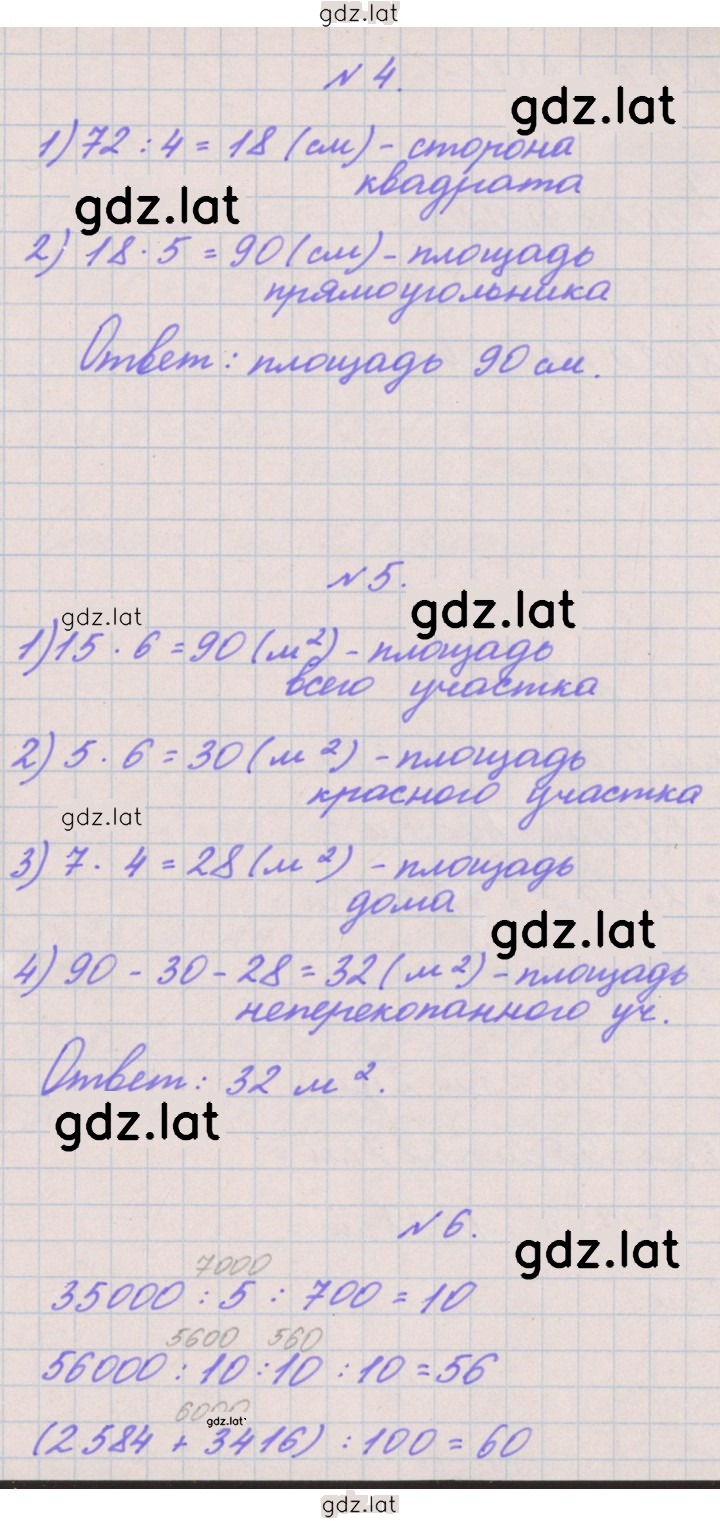 gdz.lat
№ 4.
gdz.lat
1) 72 : 4 = 18 (см) - сторона
квадрата
gdz.lat
2) 18 · 5 = 90 (см) - площадь
прямоугольника
Ответ: площадь 90 см.
№ 5.
gdz.lat
gdz.lat
1) 15 · 6 = 90 (м²) - площадь
всего участка
2) 5 · 6 = 30 (м²) - площадь
красного участка
gdz.lat
3) 7 · 4 = 28 (м²) - площадь
дома
gdz.lat
4) 90 - 30 - 28 = 32 (м²) - площадь
неперекопанного уч.
Ответ: 32 м².
gdz.lat
№ 6.
gdz.lat
7000
35000 : 5 : 700 = 10
5600 560
56000 : 10 : 10 : 10 = 56
6000
gdz.lat
(2584 + 3416) : 100 = 60
gdz.lat